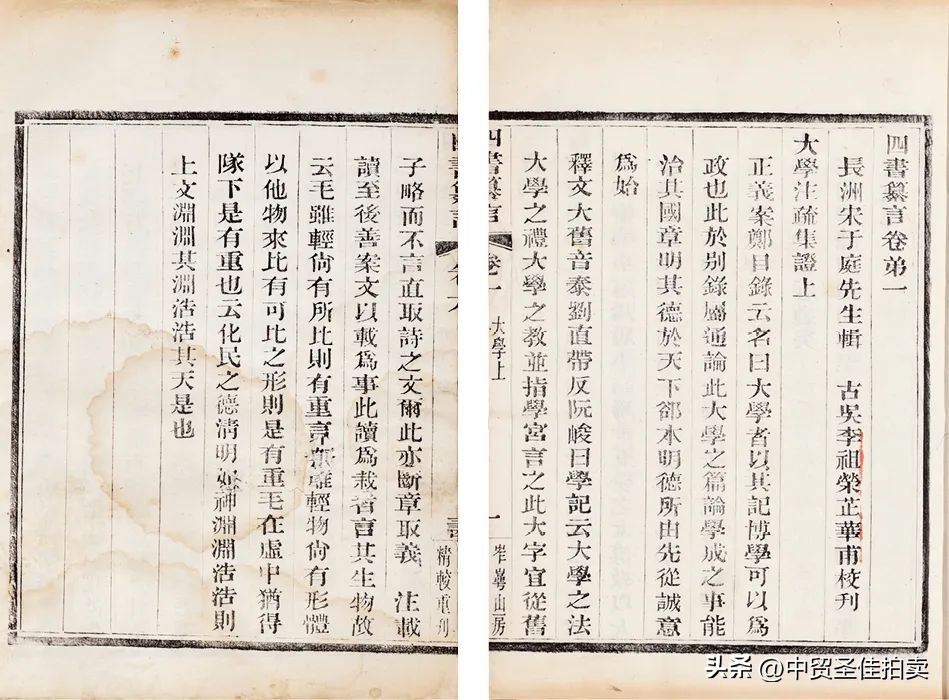 四書纂言卷弟一
長洲宋于庭先生輯　古吳李祖榮芷華甫校刋
大學注疏集證上
正義案鄭目錄云名曰大學者以其記博學可以爲
政也此於别錄屬通論此大學之篇論學成之事能
治其國章明其德於天下郤本明德所由先從誠意
爲始
釋文大舊音泰劉直帶反阮峻曰學記云大學之法
大學之禮大學之教並指學宮言之此大字宜從舊
四書纂言　卷一　大學上　一
山房
子略而不言直取詩之文爾此亦斷章取義　注載
讀至後善案文以載爲事此讀爲栽者言其生物故
云毛雖輕尙有所比則有重言毛雖輕物尙有形體
以他物來比有可比之形則是有重毛在虛中猶得
隊下是有重也云化民之德淸明如神淵淵浩浩則
上文淵淵其淵浩浩其天是也
精較重刋
头条 @中贸圣佳拍卖